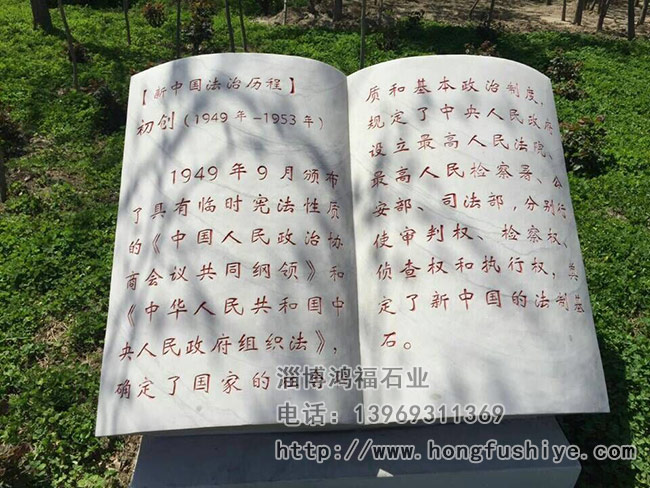 【新中国法治历程】
初创（1949年-1953年）
1949年9月颁布
了具有临时宪法性质
的《中国人民政治协
商会议共同纲领》和
《中华人民共和国中
央人民政府组织法》，
确定了国家的
质和基本政治制度，
规定了中央人民政府
设立最高人民法院、
最高人民检察署、公
安部、司法部，分别行
使审判权、检察权、
侦查权和执行权，奠
定了新中国的法制基
石。
淄博鸿福石业
电话：13969311369
http://www.hongfushiye.com